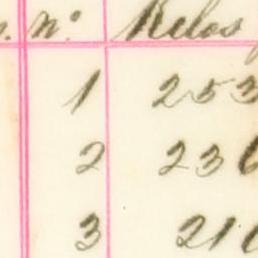 nº Kilos
1 253
2 230
3 210